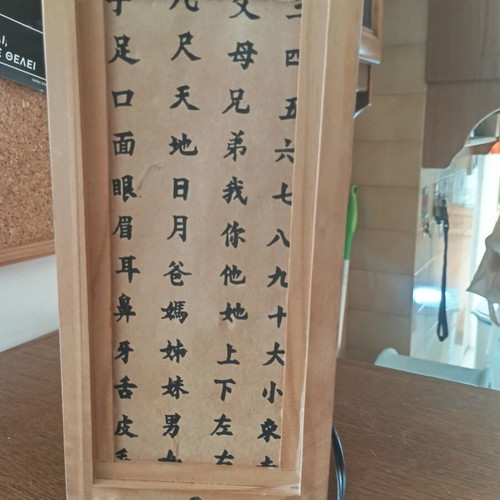 ΘΕΛΕΙ
三四五六七八九十大小東
父母兄弟我你他她上下左右
尺天地日月爸媽姊妹男女
手足口面眼眉耳鼻牙舌皮毛